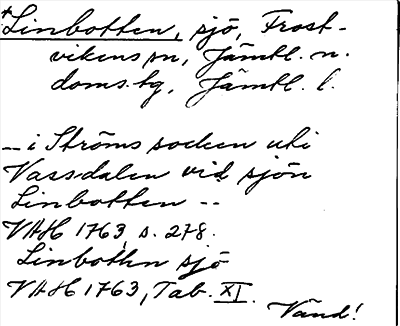 +Linbotten, sjö, Frost-
vikens sn, Jämtl. n.
doms.tg, Jämtl. l.
– i Ströms socken uti
Vassdalen vid sjön
Linbotten --
VAH 1763, s. 278.
Linbotten sjö
VAH 1763, Tab. XI.
Vänd!